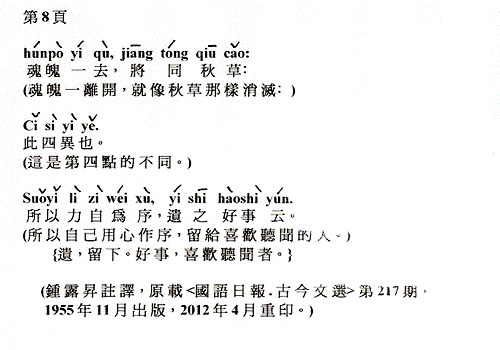 第8頁
húnpò yí qù, jiāng tóng qiū cǎo:
魂魄一去，將同秋草：
(魂魄一離開，就像秋草那樣消滅：)
Cǐ sì yì yě.
此四異也。
(這是第四點的不同。)
Suǒyǐ lì zì wéi xù, yí shī hàoshì yún.
所以力自為序，遺之好事云。
(所以自己用心作序，留給喜歡聽聞的人。)
{遺，留下。好事，喜歡聽聞者。}
(鍾露昇註譯，原載<國語日報．古今文選>第217期，
1955年11月出版，2012年4月重印。)